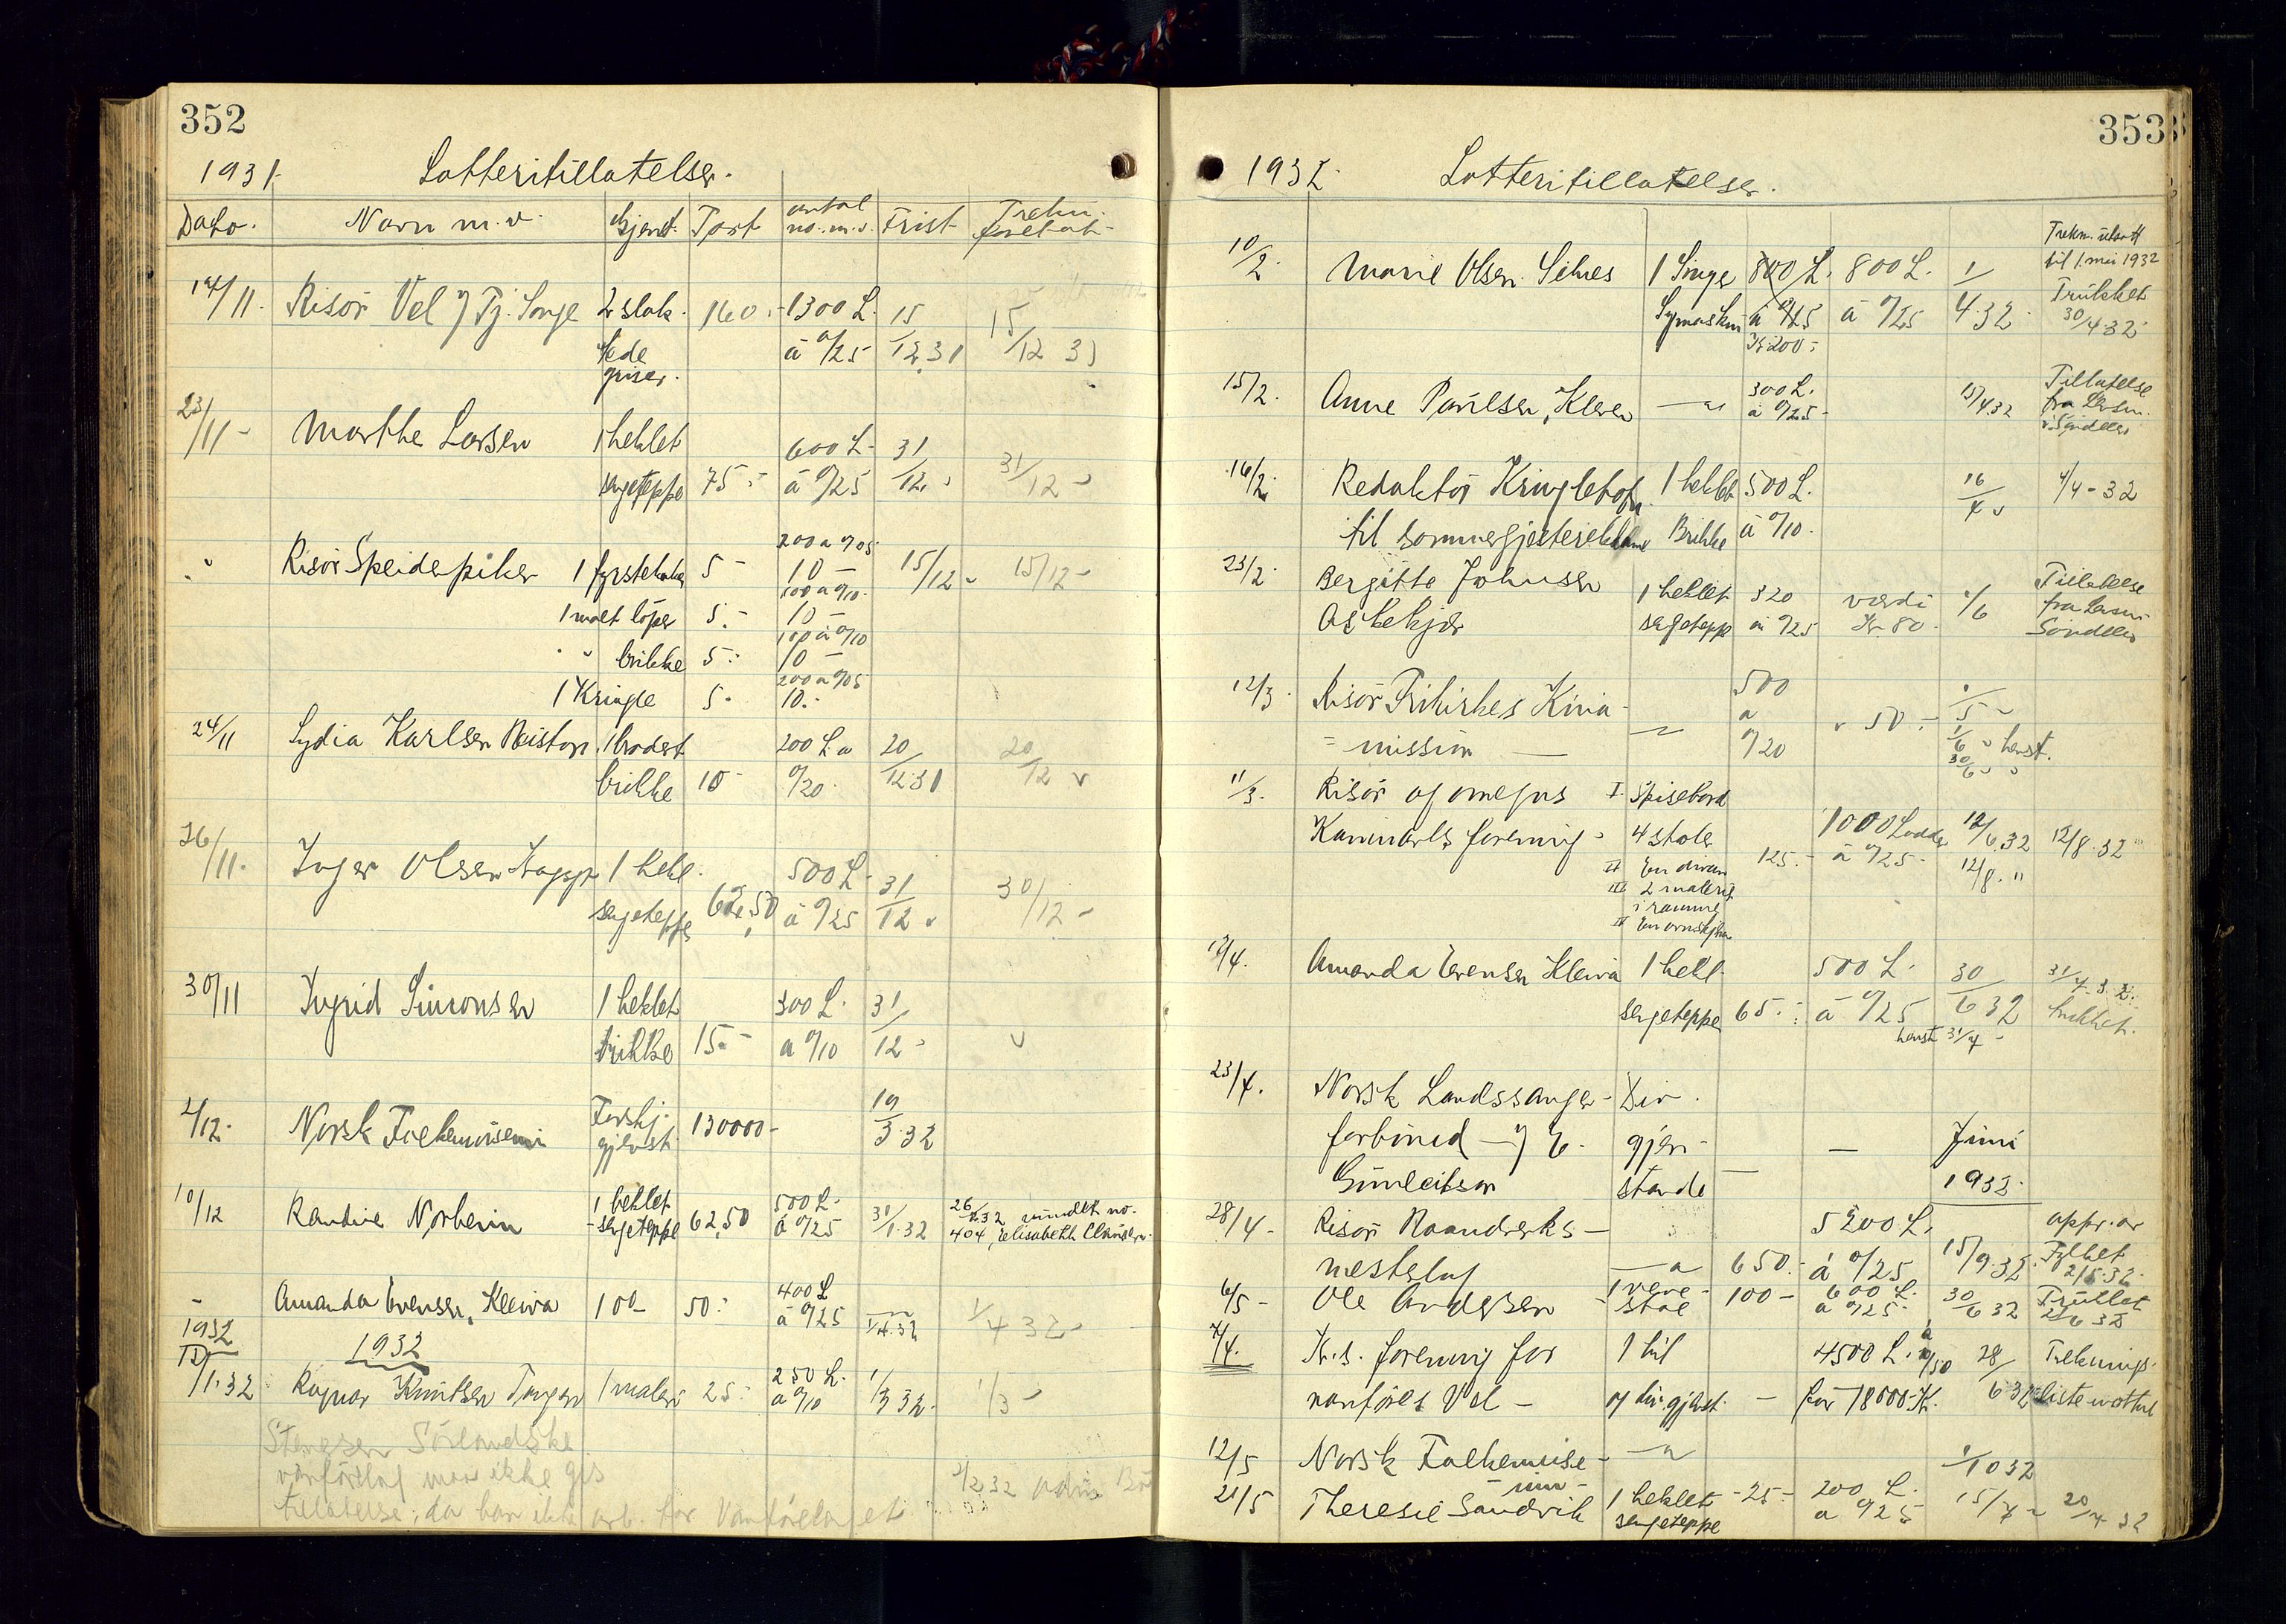 352
1931. Lotteritillatelser.
Dato. Navn m.v. Gjenst. Port antal no. m.v. Frist Trekn. foretatt
14/11. Risör Vel v/ Tj. Songe 2 slak. 160.- 1300 L. 15 15
tede à 0/25 12.31 12 31
griser.
23/11- Marthe Larsen 1 heklet 600 L- 31 31/12 -
sengeteppe 75.- à 0/25 12.
200 a 0/05
" Risör Speiderpiker 1 fyrstekake 5- 10 - 15/12 15/12 -
100 a 0/10
1 malt löper 5.- 10 -
100 à 0/10
" " brikke 5.- 10 -
200 a 0/05
1 Kringle 5- 10.-
24/11 Lydia Karlsen 1 brodert 200 L. a 20 20/12
brikke 10- 0/20 12 31
26/11. Inger Olsen 1 hekl. 500 L- 31 30/12 -
sengeteppe 62,50 à 0/25 12
30/11 Ingrid Simonsen 1 heklet 300 L. 31/
brikke 15.- a 0/10 12 -
2/12. Norsk Folkemuseum Forskj. gjenst. 130000- 19/3.32
10/12 Randine Norberin 1 heklet 500 L. 31/1.32 26/2.32 vundet no.
sengeteppe 62,50 à 0/25 404, Elisabeth
- Amanda Evensen, Kleiva 1 do- 50.- 400 L à 0/25 1/4.32 1/4 32-
1932
1932
12/1.32 Ragnar Knutsen Tangen 1 maleri 25.- 250 L. a 0/10 1/3 32. 1/3 -
Stensen Sörlandske
vanförelag maa ikke gis
tillatelse, da han ikke arb. for Vanförelaget
353
1932. Lotteritillatelser.
Trekn. utsatt
10/2. Marie Olsen Selnes 1 Singer 800 L. 800 L. 1/ til 1. mai 1932
Symaskin à 0/25 à 0/25 4.32 Trukket
Kr 200.- 30/4 32.
15/2. Anne Paulsen, Kleven —"— 300 L. à 0/25- 15/4 32 Tillatelse
fra Lensm.
i Söndeled
16/2. Redaktör Kringlebotn 1 heklet 500 L. 16 4/4-32
til sommergjesterektlame Brikke à 0/10. 4
23/2. Bergitte Johnsen 1 heklet 320 værdi 1/6 Tillatelse
Østebkjær sengeteppe à 0/25 Kr 80. fra Lensm.
Söndeled
12/3. Risör Frikirkes Kina- 500 " 50.- 1/5
= mission — —"— a 0/20 1/6 " henst.
30/6 " "
11/3. Risör og omegns I. Spisebord
Kaninavls forening- 4 stoler 125.- 1000 Lodder 12/6.32 12/8.32
II En divan à 0/25- 12/8. "
III 2 malerier
i ramme
IV En
12/4. Amanda Evensen Kleiva 1 hekl. 500 L. 30 31/7.32.
sengeteppe 65.- à 0/25 6 32 trukket.
henst 31/7 -
23/4. Norsk Landssanger- Div.
forbund - v/ E. gjen- — Juni
Gunleiksen stande — 1932.
28/4- Risör Haandverks- 5200 L. appr. av
mesterlag —"— 650.- à 0/25 15/9.32. Fylket 2/5.32.
6/5- Ole Andersen 1 hvile- 100- 600 L. 30 Trukket
stol a 0/25- 6 32 6 32
7/4. Kr.s. forening for 1 bil 4500 L. à 28/ Treknings-
vanföres Vel - og div. gjenst. - for 18000 Kr. 6 32 liste mottat
12/5 Norsk Folkemuse- —"— 1/10 32
um -
21/5 Theresie Sandvik 1 heklet -25- 200 L. 15/7 20/7 32
sengeteppe a 0/25